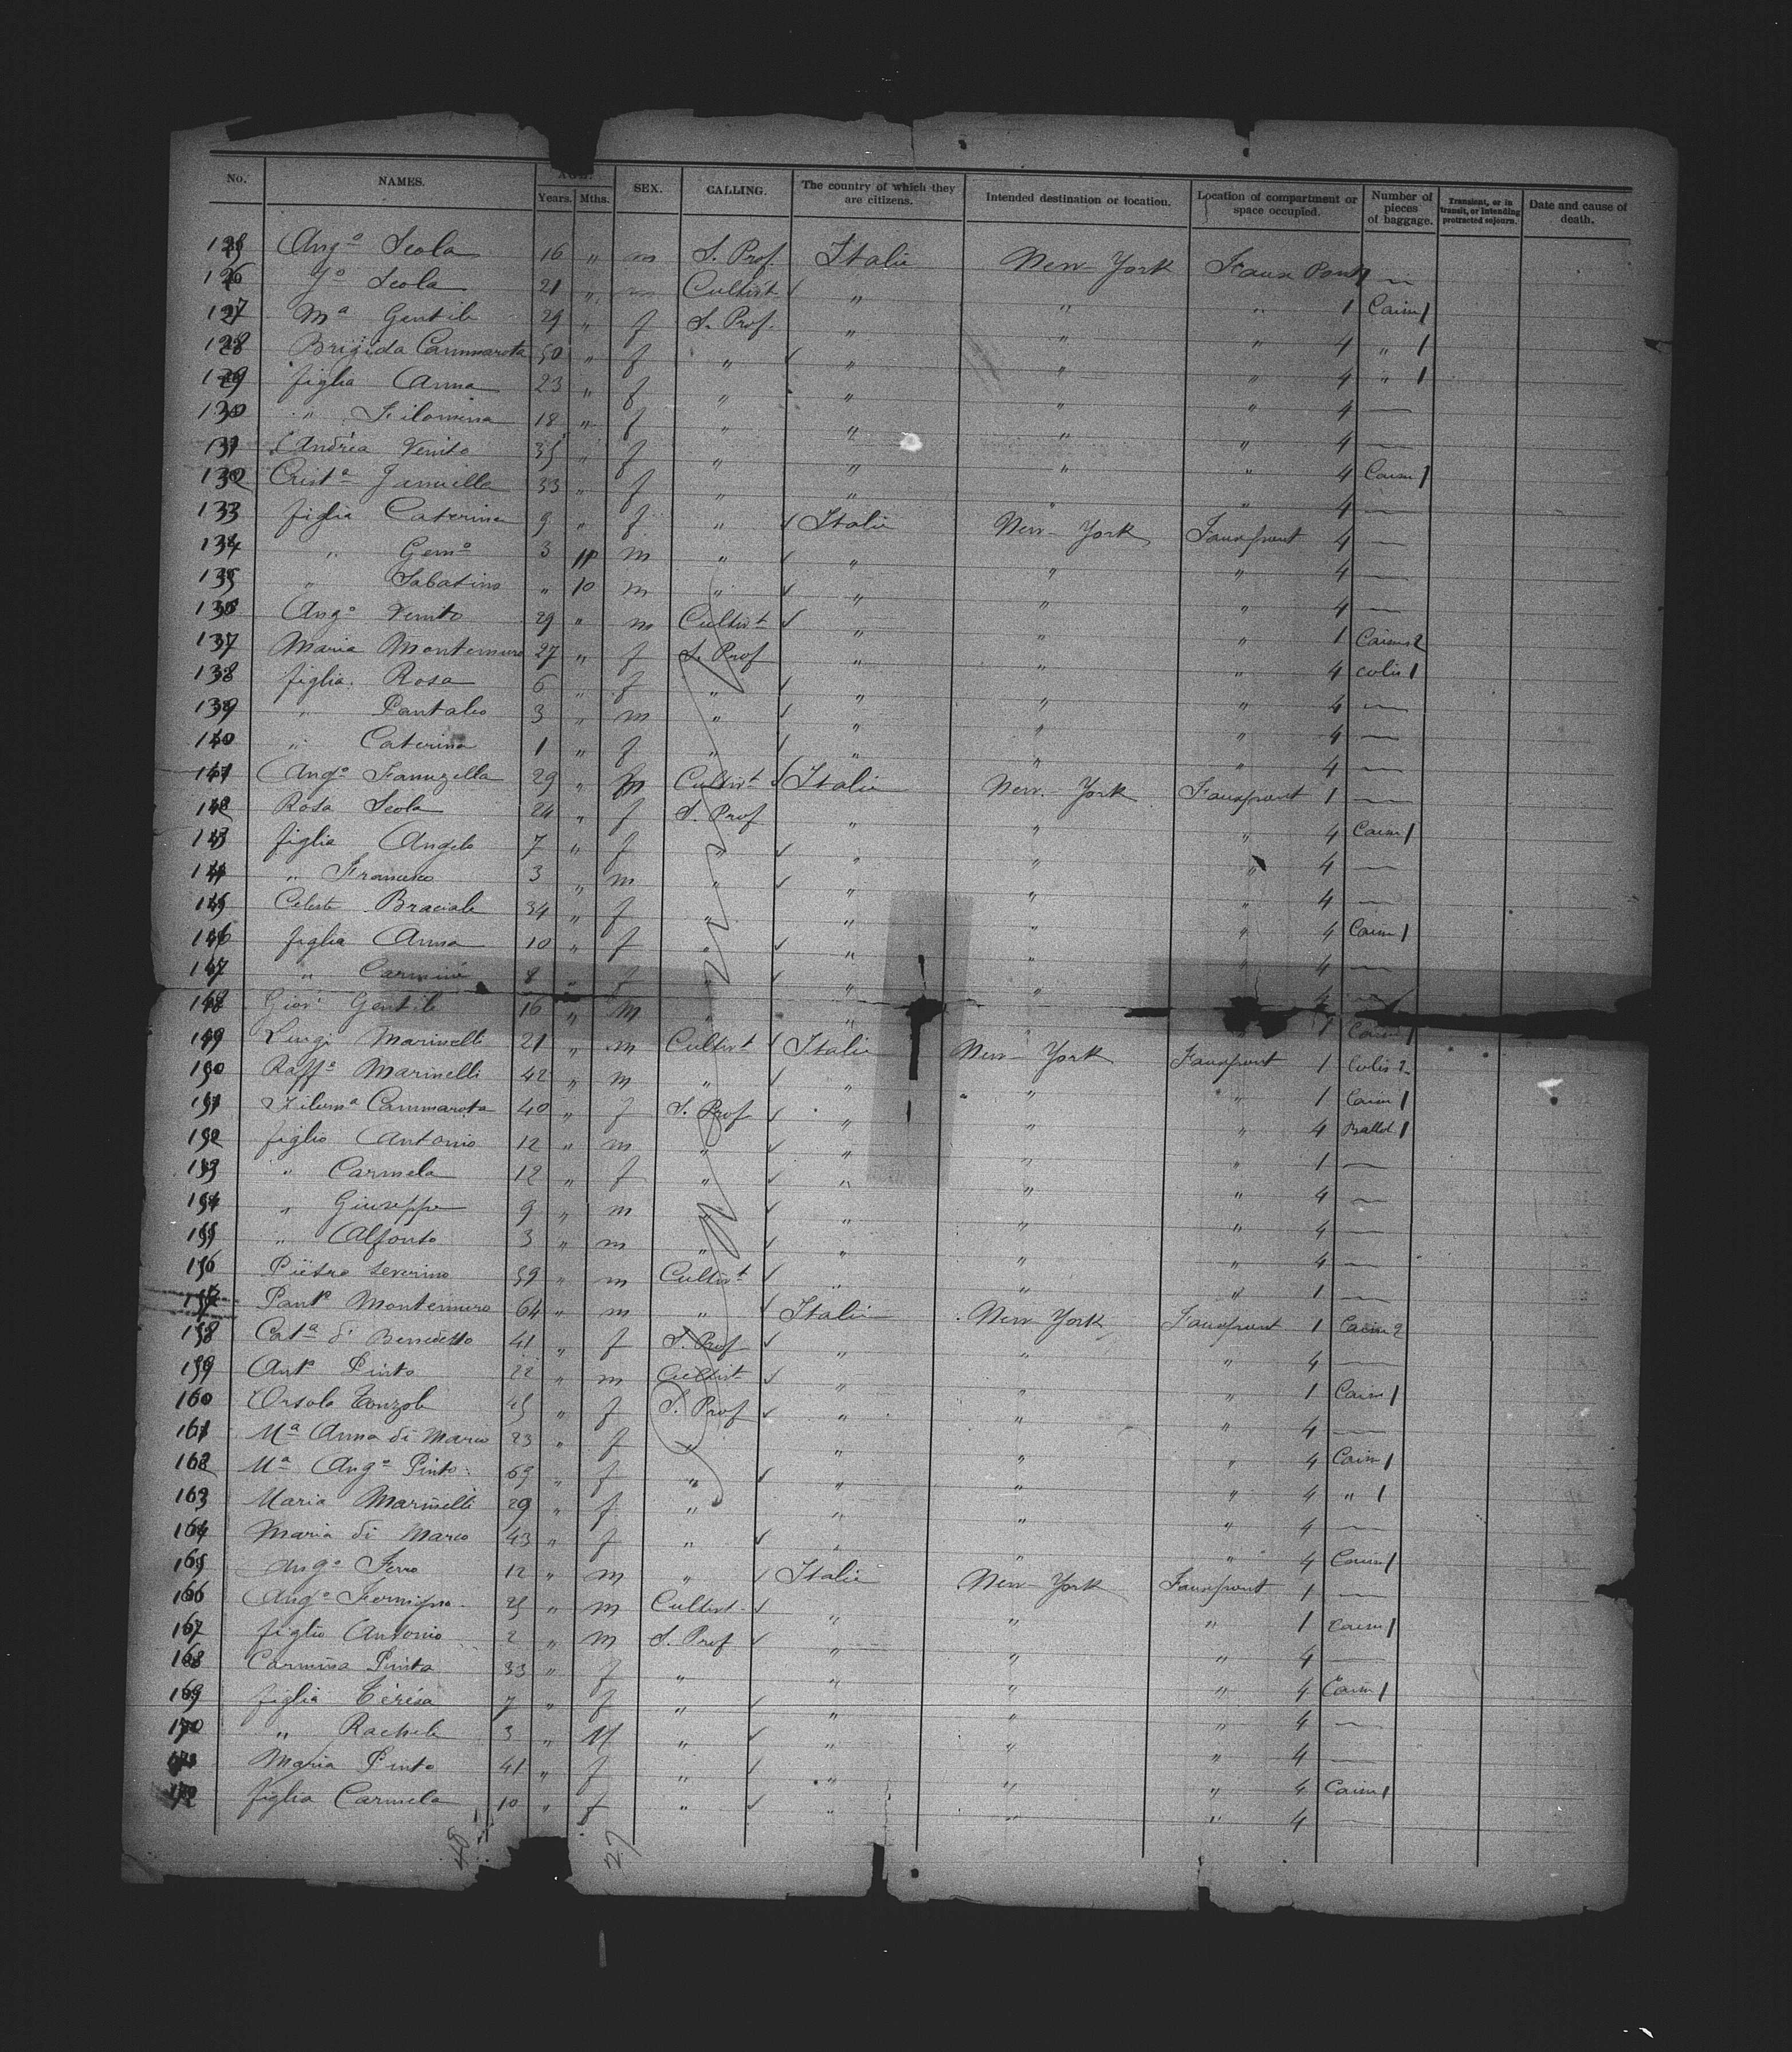 No. NAMES. AGE. Years. Mths. SEX. CALLING. The country of which they are citizens. Intended destination or location. Location of compartment or space occupied. Number of pieces of baggage. Transient, or in transit, or intending protracted sojourn. Date and cause of death.
125 Ang° Scola 16 " m S. Prof. Italie New York Faux Pont 1 —
126 Scola 21 " m Cultivt " " " 1 Caim 1
127 Ma Gentile 29 " f S. Prof. " " " 4 " 1
128 Brigida Cammarota 50 " f " " " " 4 " 1
129 figlia Anna 23 " f " " " " 4 —
130 " Filomena 18 " f " " " " 4 —
131 Andréa Venito 35 " f " " " " 4 Caim 1
132 Crista 33 " f " " " " 4 —
133 figlia Caterina 9 " f " Italie New-York Fauxpont 4 —
134 " Gem° 3 11 m " " " " 4 —
135 " Sabatino " 10 m " " " " 4 —
136 Ang° Venito 29 " m Cultivt " " " 1 Caim 2
137 Maria Montemuro 27 " f S. Prof " " " 4 colis 1
138 figlia Rosa 6 " f " " " " 4 —
139 " Pantaleo 3 " m " " " " 4 —
140 " Caterina 1 " f " " " " 4 —
141 Ang° Fanuzella 29 " m Cultivt Italie New-York Fauxpont 1 —
142 Rosa Scola 24 " f S. Prof " " " 4 Caim 1
143 figlia Angela 7 " f " " " " 4 —
144 " Francesco 3 " m " " " " 4 —
145 Celeste Braciale 34 " f " " " " 4 Caim 1
146 figlia Anna 10 " f " " " " 4 —
147 " Carmine 8 " f " " " " 4 —
148 Giov: Gentile 16 " m " " " " 1 Caim 1
149 Luigi Marinelli 21 " m Cultivt Italie New-York Fauxpont 1 Colis 2
150 Raff° Marinelli 42 " m " " " " 1 Caim 1
151 Filoma Cammarota 40 " f S. Prof " " " 4 Ballot 1
152 figlio Antonio 12 " m " " " " 1 —
153 " Carmela 12 " f " " " " 4 —
154 " Giuseppe 9 " m " " " " 4 —
155 " Alfonso 3 " m " " " " 4 —
156 Piétro Severino 59 " m Cultivt " " " 1 —
157 Pant° Montemuro 64 " m " Italie New York Fauxpont 1 Caim 2
158 Cata di Benedetto 41 " f S. Prof " " " 4 —
159 Ant° Pinto 22 " m Cultivt " " " 1 Caim 1
160 Orsola 45 " f S. Prof " " " 4 —
161 Ma Anna di Marco 23 " f " " " " 4 Caim 1
162 Ma Anga Pinto 69 " f " " " " 4 " 1
163 Maria Marinelli 29 " f " " " " 4 —
164 Maria di Marco 43 " f " " " " 4 Caim 1
165 Ang° Ferro 12 " m " Italie New York Fauxpont 1 —
166 Ang° 25 " m Cultivt " " " 1 Caim 1
167 figlio Antonio 2 " m S. Prof " " " 4 —
168 Carmina Pinto 33 " f " " " " 4 Caim 1
169 figlia Térésa 7 " f " " " " 4 —
170 " Rachele 3 " M " " " " 4 —
171 Maria Pinto 41 " f " " " " 4 Caim 1
172 figlia Carmela 10 " f " " " " 4 —
48 27